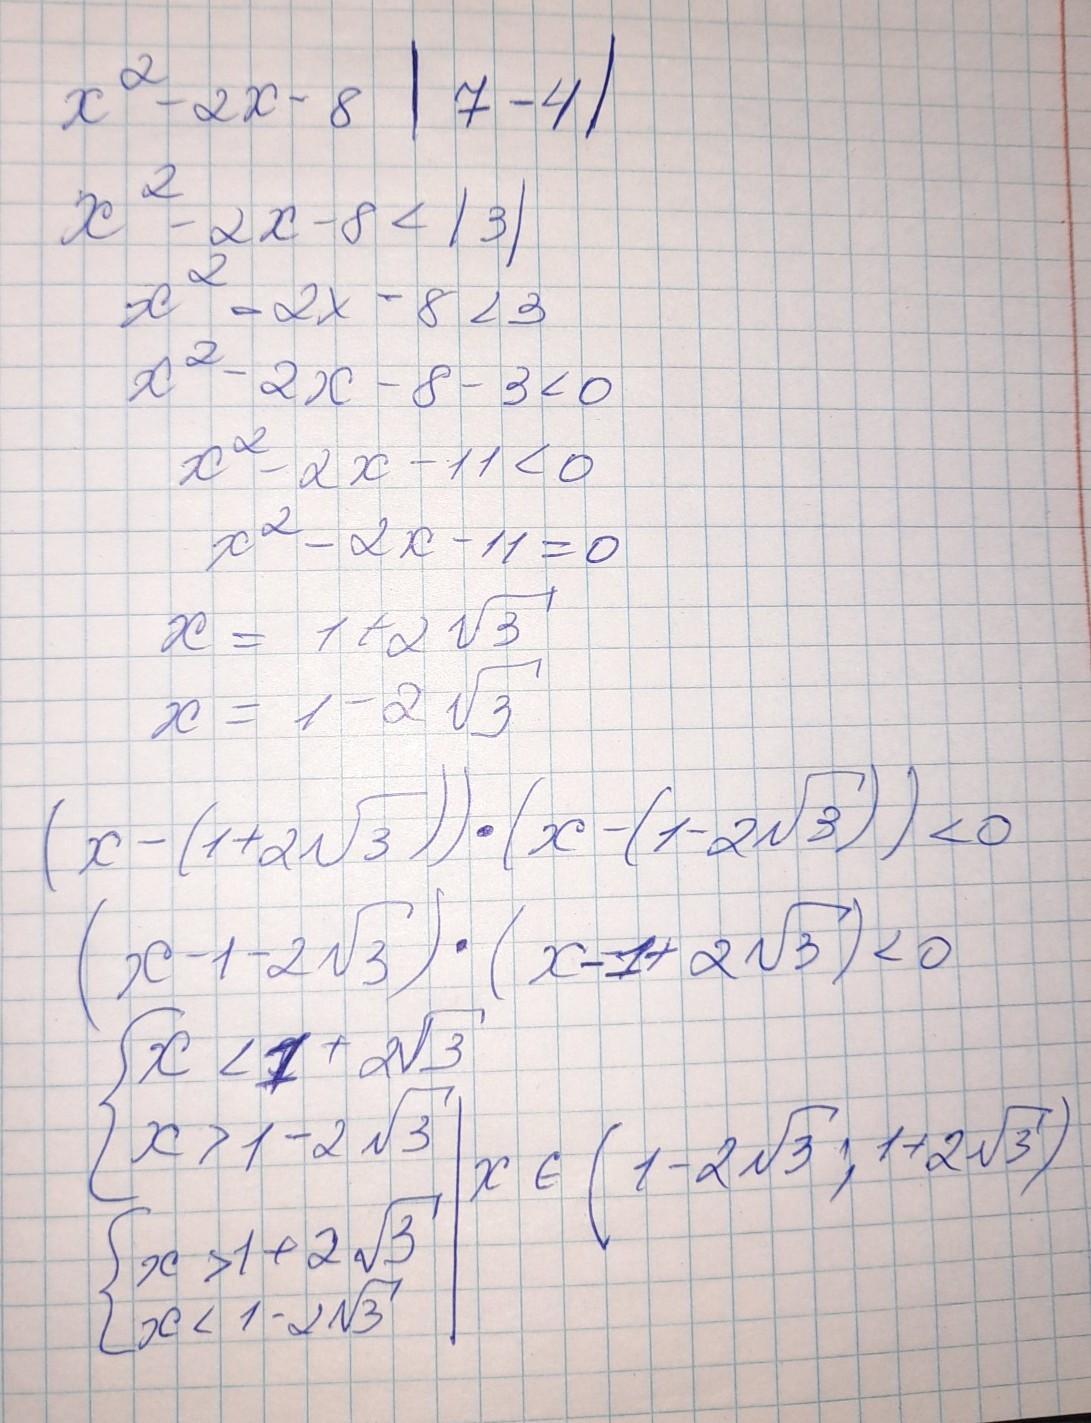 x² - 2x - 8 | 7 - 4 |
x² - 2x - 8 < | 3 |
x² - 2x - 8 < 3
x² - 2x - 8 - 3 < 0
x² - 2x - 11 < 0
x² - 2x - 11 = 0
x = 1 + 2√3
x = 1 - 2√3
(x - (1 + 2√3)) · (x - (1 - 2√3)) < 0
(x - 1 - 2√3) · (x - 1 + 2√3) < 0
{ x < 1 + 2√3
x > 1 - 2√3 | x ∈ (1 - 2√3 ; 1 + 2√3)
{ x > 1 + 2√3
x < 1 - 2√3